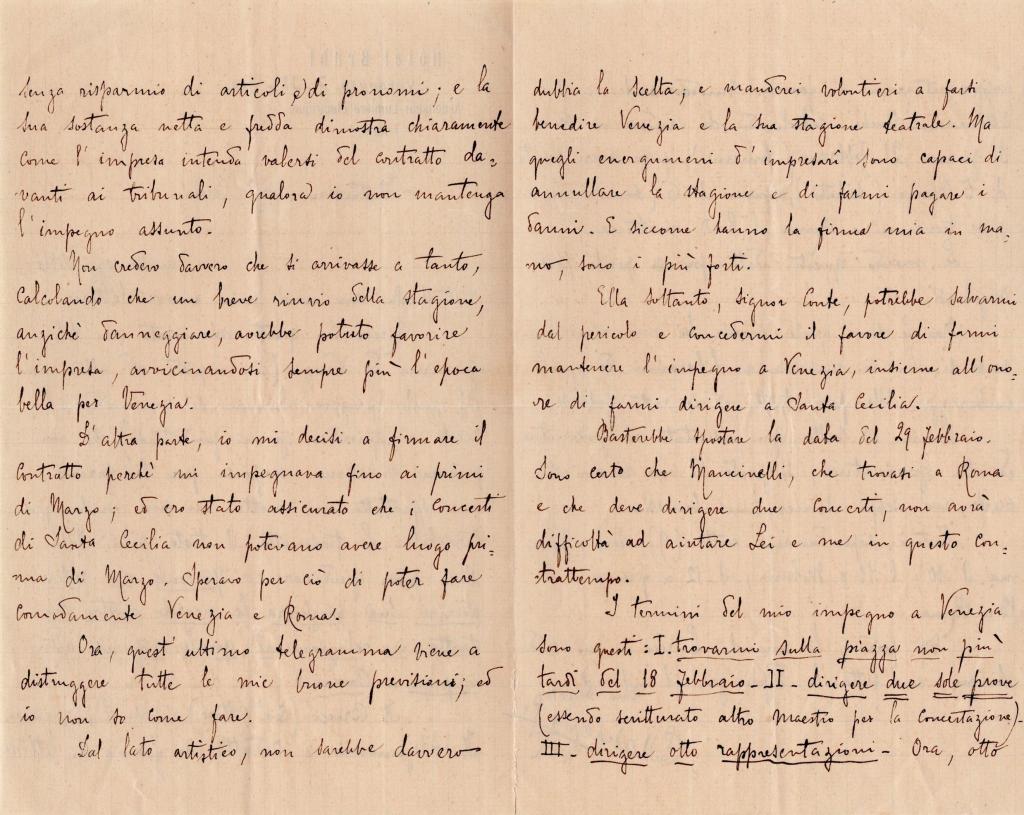 senza risparmio di articoli e di pronomi; e la
sua sostanza netta e fredda dimostra chiaramente
come l'impresa intenda valersi del contratto da=
vanti ai tribunali, qualora io non mantenga
l'impegno assunto.
Non credevo davvero che si arrivasse a tanto,
calcolando che un breve rinvio della stagione,
anzichè danneggiare, avrebbe potuto favorire
l'impresa, avvicinandosi sempre più l'epoca
bella per Venezia.
D'altra parte, io mi decisi a firmare il
contratto perchè mi impegnava fino ai primi
di Marzo; ed ero stato assicurato che i concerti
di Santa Cecilia non potevano avere luogo pri=
ma di Marzo. Speravo per ciò di poter fare
comodamente Venezia e Roma.
Ora, quest'ultimo telegramma viene a
distruggere tutte le mie buone previsioni; ed
io non so come fare.
Dal lato artistico, non sarebbe davvero
dubbia la scelta; e manderei volontieri a farsi
benedire Venezia e la sua stagione teatrale. Ma
quegli energumeni d'impresarî sono capaci di
annullare la stagione e di farmi pagare i
danni. E siccome hanno la firma mia in ma=
no, sono i più forti.
Ella soltanto, signor Conte, potrebbe salvarmi
dal pericolo e concedermi il favore di farmi
mantenere l'impegno a Venezia, insieme all'ono=
re di farmi dirigere a Santa Cecilia.
Basterebbe spostare la data del 29 febbraio.
Sono certo che Mancinelli, che trovasi a Roma
e che deve dirigere due concerti, non avrà
difficoltà ad aiutare Lei e me in questo con=
trattempo.
I termini del mio impegno a Venezia
sono questi: I. trovarmi sulla piazza non più
tardi del 18 febbraio - II - dirigere due sole prove
(essendo scritturato altro maestro per la concertazione) -
III - dirigere otto rappresentazioni - Ora, otto